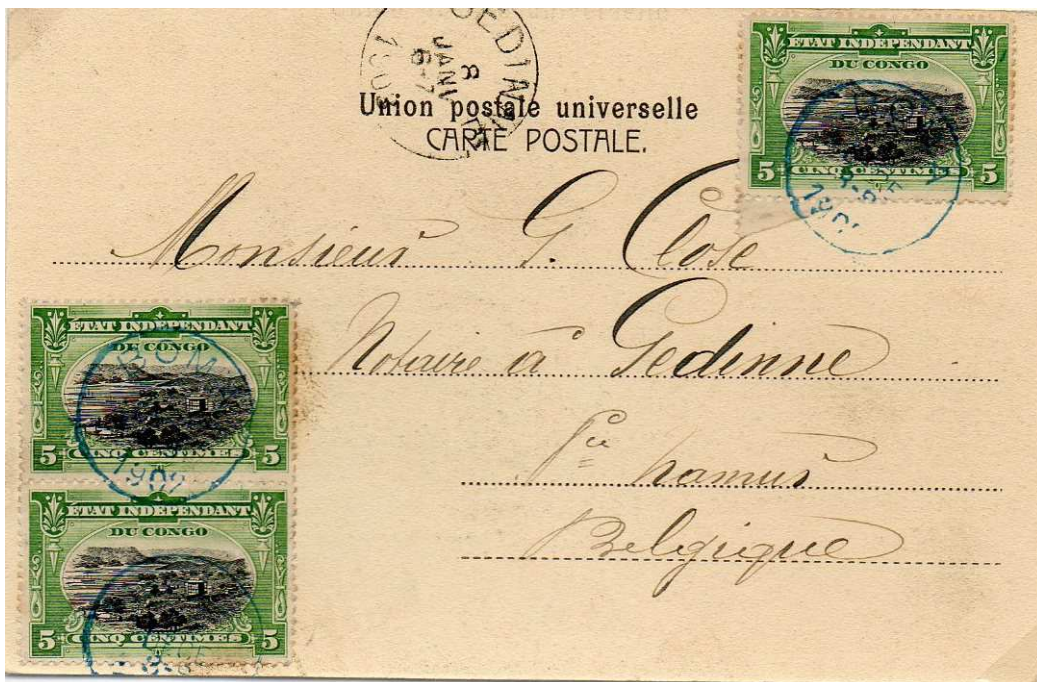 GEDINNE
8
JANV
6-7
190
Union postale universelle
CARTE POSTALE.
ÉTAT INDÉPENDANT
DU CONGO
5 CINQ CENTIMES 5
BOMA
DEC
190
Monsieur G. Close
Notaire à Gedinne
Pce Namur
Belgique
ÉTAT INDÉPENDANT
DU CONGO
5 CINQ CENTIMES 5
BOMA
1902
ÉTAT INDÉPENDANT
DU CONGO
5 CINQ CENTIMES 5